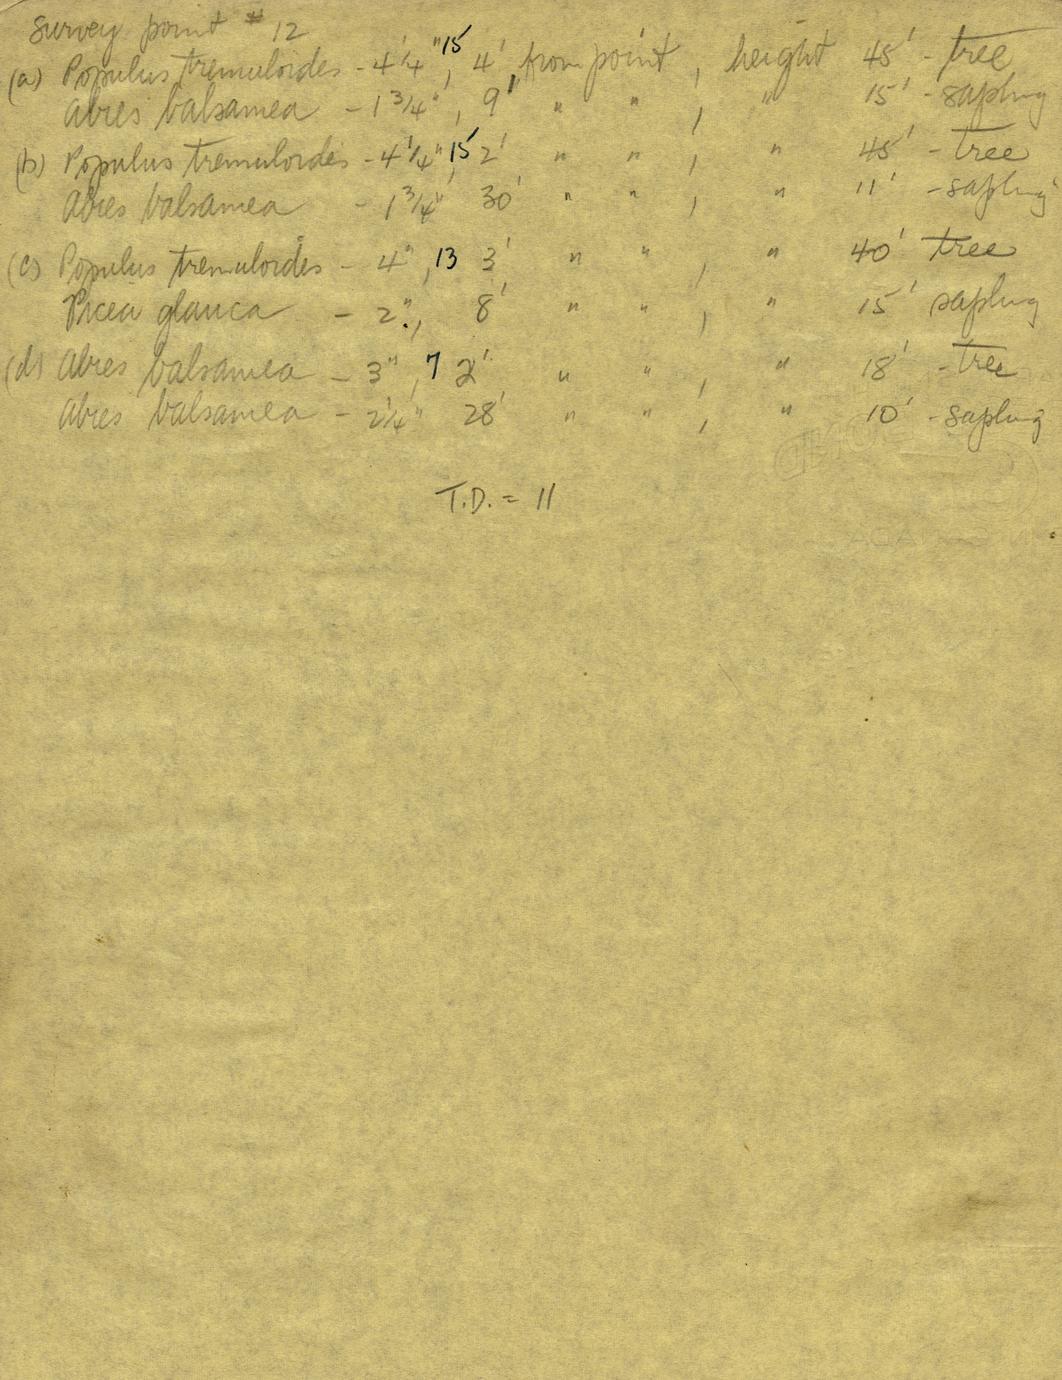 Survey point # 12
(a) Populus tremuloides - 4 1/4", 15 4' from point, height 45' - tree
Abies balsamea - 1 3/4", 9' " " , " 15' - sapling
(b) Populus tremuloides - 4 1/4", 15 2' " " , " 45' - tree
Abies balsamea - 1 3/4", 30' " " , " 11' - sapling
(c) Populus tremuloides - 4", 13 3' " " , " 40' tree
Picea glauca - 2", 8' " " , " 15' sapling
(d) Abies balsamea - 3", 7 2' " " , " 18' - tree
Abies balsamea - 2 1/4" 28' " " , " 10' - sapling
T.D. = 11